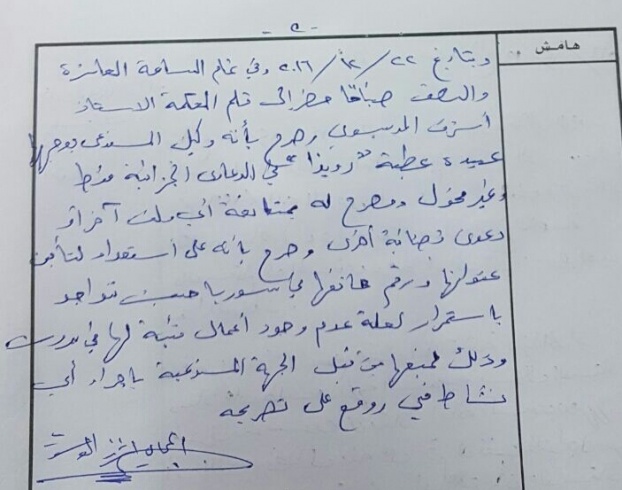 - ٢ -
هامش
وبتاريخ ٢٢/١٢/٢٠١٦ وفي تمام الساعة العاشرة
والنصف صباحًا حضر الى قلم المحكمة الاستاذ
أشرف الموسوي وصرح بأنه وكيل المستدعى بوجهها
عبيدة عطية "رويدا" في الدعاوى الجزائية فقط
وغير مخول ومصرح له بمتابعة أي ملف آخر او
دعوى قضائية أخرى وصرح بانه على استعداد لتأمين
عنوانها ورقم هاتفها في سوريا حيث تتواجد
باستمرار لعلة عدم وجود أعمال فنية لها في بيروت
وذلك لمنعها من قبل الجهة المستدعية باجراء أي
نشاط فني ووقع على تصريحه